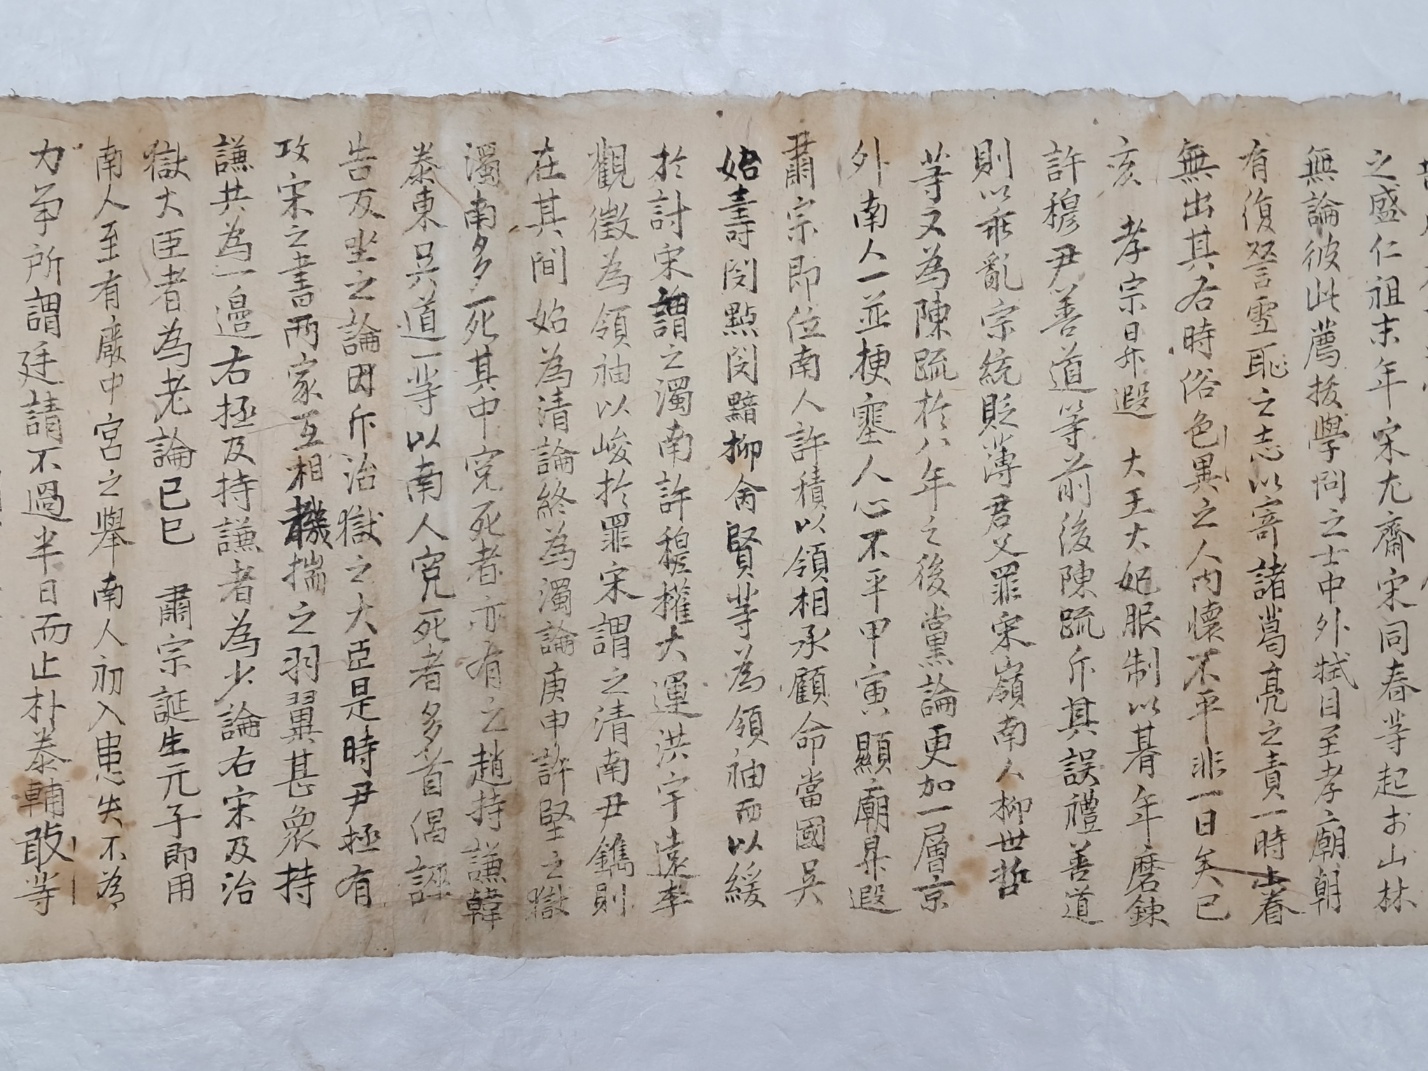 之盛仁祖末年宋尤齋宋同春等起於山林
無論彼此薦拔學問之士中外拭目至孝廟朝
有復讐雪恥之志以寄諸葛亮之責一時眷
無出其右時俗色異之人內懷不平非一日矣己
亥 孝宗昇遐 大王大妃服制以朞年磨鍊
許穆尹善道等前後陳疏斥其誤禮善道
則以乖亂宗統貶薄君父罪宋嶺南人柳世哲
等又為陳疏於八年之後黨論更加一層京
外南人一並梗塞人心不平甲寅顯廟昇遐
肅宗即位南人許積以領相承顧命當國吳
始壽閔點閔黯柳命賢等為領袖而以緩
於討宋謂之濁南許穆權大運洪宇遠李
觀徵為領袖以峻於罪宋謂之清南尹鑴則
在其間始為清論終為濁論庚申許堅之獄
濁南多死其中冤死者亦有之趙持謙韓
泰東吳道一等以南人冤死者多首倡誣
告反坐之論因斥治獄之大臣是時尹拯有
攻宋之書兩家互相機揣之羽翼甚衆持
謙共為一邊右拯及持謙者為少論右宋及治
獄大臣者為老論己巳 肅宗誕生元子即用
南人至有廢中宮之擧南人初入患失不為
力爭所謂廷請不過半日而止朴泰輔敢等